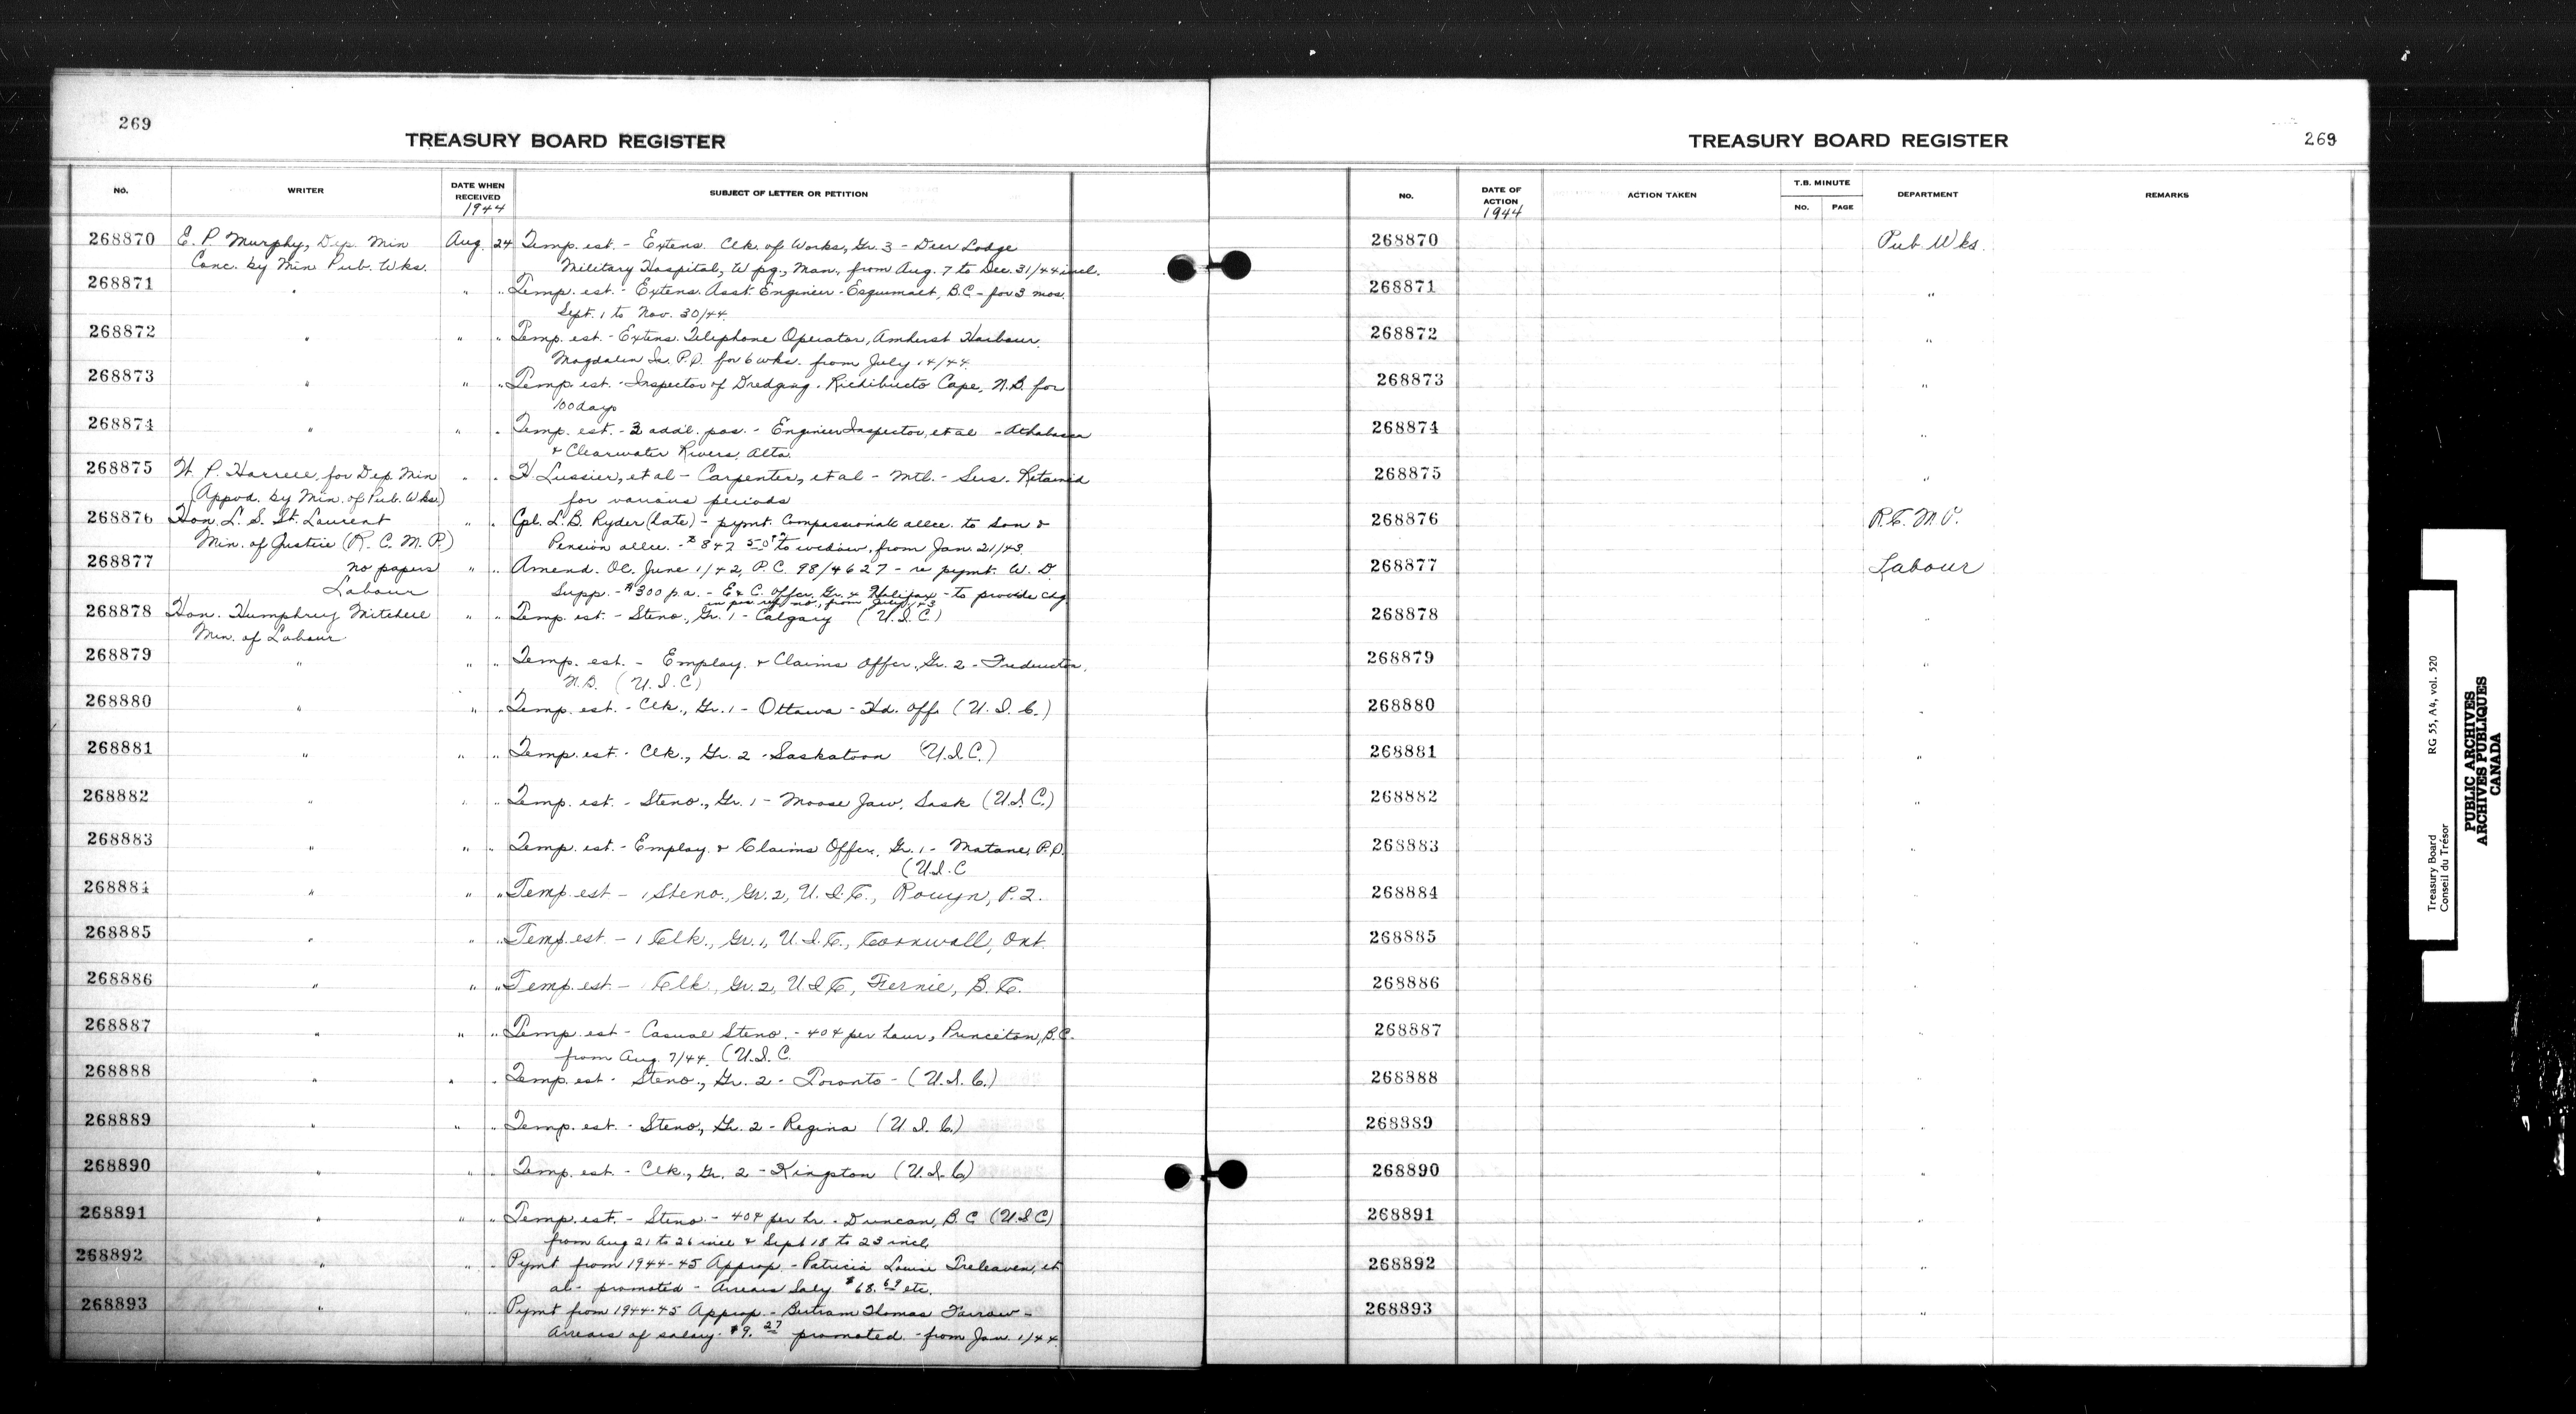 269
TREASURY BOARD REGISTER
NO. WRITER DATE WHEN RECEIVED 1944 SUBJECT OF LETTER OR PETITION
268870 E. P. Murphy, Dep. Min Aug. 24 Temp. est. - Extens. Clk. of Works, Gr. 3 - Deer Lodge
Conc. by Min Pub. Wks. Military Hospital, Wpg., Man., from Aug. 7 to Dec. 31/44 incl.
268871 " " " Temp. est. - Extens. Asst. Engineer - Esquimalt, B.C. - for 3 mos.
Sept. 1 to Nov. 30/44.
268872 " " " Temp. est. - Extens. Telephone Operator, Amherst Harbour,
Magdalen Is. P.Q. for 6 wks. from July 14/44.
268873 " " " Temp. est. - Inspector of Dredging - Richibucto Cape, N.B. for
100 days
268874 " " " Temp. est. - 2 addl. pos. - Engineer Inspector, et al - Athabasca
& Clearwater Rivers, Alta.
268875 W. P. Harrell, for Dep. Min " " H Lussier, et al - Carpenter, et al - Mtl. - Sus. Retained
(Appvd. by Min. of Pub. Wks.) for various periods
268876 Hon. L. S. St. Laurent " " Cpl. L. B. Ryder (late) - pymt. Compassionate allce. to son &
Min. of Justice (R. C. M. P.) Pension allce. - $847 50 to widow, from Jan. 21/43.
268877 no papers " " Amend. OC. June 1/42, P.C. 98/4627 - re pymt. W. D.
Labour Supp. - $300 p.a. - E & C. Offcr. Gr. 4 Halifax - to provide chg.
from July 1/43
268878 Hon. Humphrey Mitchell " " Temp. est. - Steno., Gr. 1 - Calgary (U.I.C)
Min. of Labour
268879 " " " Temp. est. - Employ. & Claims Offcr., Gr. 2 - Fredericton,
N.B. (U.I.C)
268880 " " " Temp. est. - Clk., Gr. 1 - Ottawa - Hd. Off. (U.I.C.)
268881 " " " Temp. est. - Clk., Gr. 2 - Saskatoon (U.I.C.)
268882 " " " Temp. est. - Steno., Gr. 1 - Moose Jaw, Sask (U.I.C.)
268883 " " " Temp. est. - Employ. & Claims Offcr. Gr. 1 - Matane, P.Q.
(U.I.C
268884 " " " Temp. est - 1 Steno., Gr. 2, U.I.C., Rouyn, P.Q.
268885 " " " Temp. est. - 1 Clk., Gr. 1, U.I.C., Cornwall, Ont.
268886 " " " Temp. est. - 1 Clk., Gr. 2, U.I.C, Fernie, B.C.
268887 " " " Temp. est - Casual Steno. - 40¢ per hour, Princeton, B.C.
from Aug. 7/44. (U.I.C.
268888 " " " Temp. est - Steno., Gr. 2 - Toronto - (U.I.C.)
268889 " " " Temp. est. - Steno., Gr. 2 - Regina (U.I.C.)
268890 " " " Temp. est. - Clk., Gr. 2 - Kingston (U.I.C)
268891 " " " Temp. est. - Steno. - 40¢ per hr. - Duncan, B.C (U.I.C)
from Aug 21 to 26 incl & Sept 18 to 23 incl,
268892 " " " Pymt from 1944-45 Approp. - Patricia Louise Treleaven, et
al - promoted - Arrears Saly $68.69 etc.
268893 " " " Pymt from 1944-45 Approp. - Bertram Thomas Farrow -
Arrears of salary - $9.27 promoted - from Jan. 1/44.
TREASURY BOARD REGISTER
269
NO. DATE OF ACTION 1944 ACTION TAKEN T.B. MINUTE NO. PAGE DEPARTMENT REMARKS
268870 Pub. Wks.
268871 "
268872 "
268873 "
268874 "
268875 "
268876 R.C.M.P.
268877 Labour
268878 "
268879 "
268880 "
268881 "
268882 "
268883 "
268884 "
268885 "
268886 "
268887 "
268888 "
268889 "
268890 "
268891 "
268892 "
268893 "
Treasury Board RG 55, A4, vol. 520
Conseil du Trésor
PUBLIC ARCHIVES
ARCHIVES PUBLIQUES
CANADA